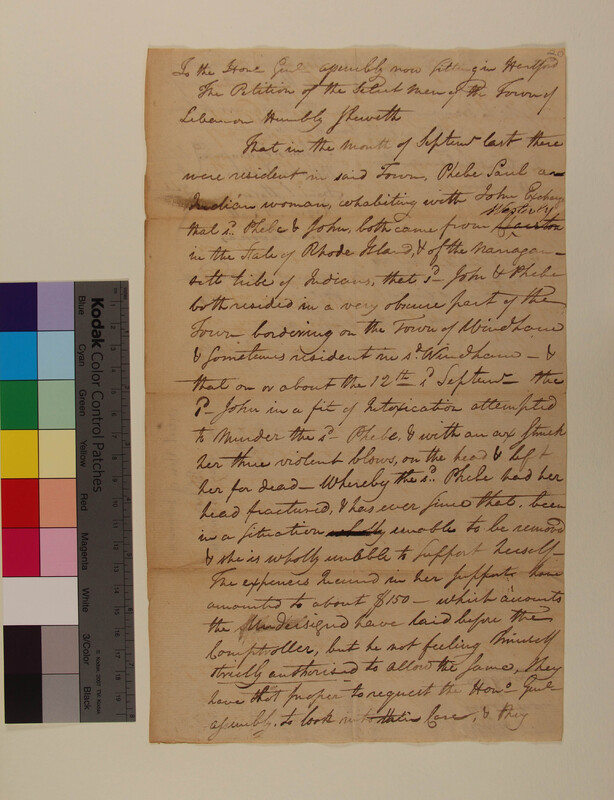 20
To the Honl. Genl. assembly now sitting in Hertford
The Petition of the Select men of the Town of
Lebanon Humbly Sheweth
That in the month of Septemr last there
were resident in said Town, Phebe Paul an
Indian woman, cohabiting with John Exchang
Westerly
that sd. Phebe & John, both came from
in the State of Rhode Island, & of the Narragan-
sett tribe of Indians, that sd John & Phebe
both resided in a very obscure part of the
Town bordering on the Town of Windham
& sometimes resident in sd. Windham - &
that on or about the 12th sd Septemr the
sd John in a fit of Intoxication attempted
to Murder the sd Phebe, & with an ax struck
her three violent blows, on the head & left
her for dead - Whereby the sd. Phebe had her
head fractured, & has ever since that, been
in a situation wholly unable to be removd
& she is wholly unable to support herself -
The expences incured in her support have
amounted to about $150 - which accounts
the Undersigned have laid before the
Comptroller, but he not feeling himself
strictly authorised to allow the same, They
have thot proper to request the Honl. Genl.
assembly to look into their Case, & they
Kodak Color Control Patches
Blue
Cyan
Green
Yellow
Red
Magenta
White
3/Color
Black